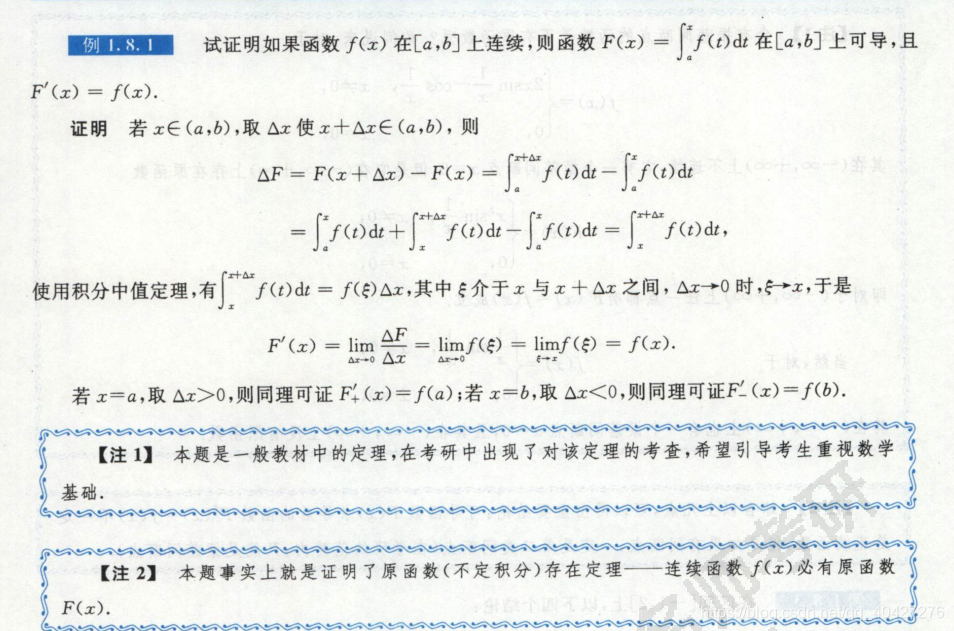 例 1.8.1 试证明如果函数 f(x) 在[a,b] 上连续,则函数 F(x) = ∫ₐˣ f(t)dt 在[a,b] 上可导,且
F′(x) = f(x).
证明 若 x∈(a,b),取 Δx 使 x+Δx∈(a,b), 则
ΔF = F(x+Δx) − F(x) = ∫ₐ^{x+Δx} f(t)dt − ∫ₐˣ f(t)dt
= ∫ₐˣ f(t)dt + ∫ₓ^{x+Δx} f(t)dt − ∫ₐˣ f(t)dt = ∫ₓ^{x+Δx} f(t)dt,
使用积分中值定理,有∫ₓ^{x+Δx} f(t)dt = f(ξ)Δx,其中 ξ 介于 x 与 x+Δx 之间, Δx→0 时,ξ→x,于是
F′(x) = lim_{Δx→0} ΔF/Δx = lim_{Δx→0} f(ξ) = lim_{ξ→x} f(ξ) = f(x).
若 x=a,取 Δx>0,则同理可证 F′₊(x)=f(a);若 x=b,取 Δx<0,则同理可证F′₋(x)=f(b).
【注 1】 本题是一般教材中的定理,在考研中出现了对该定理的考查,希望引导考生重视数学
基础.
【注 2】 本题事实上就是证明了原函数(不定积分)存在定理——连续函数 f(x)必有原函数
F(x).